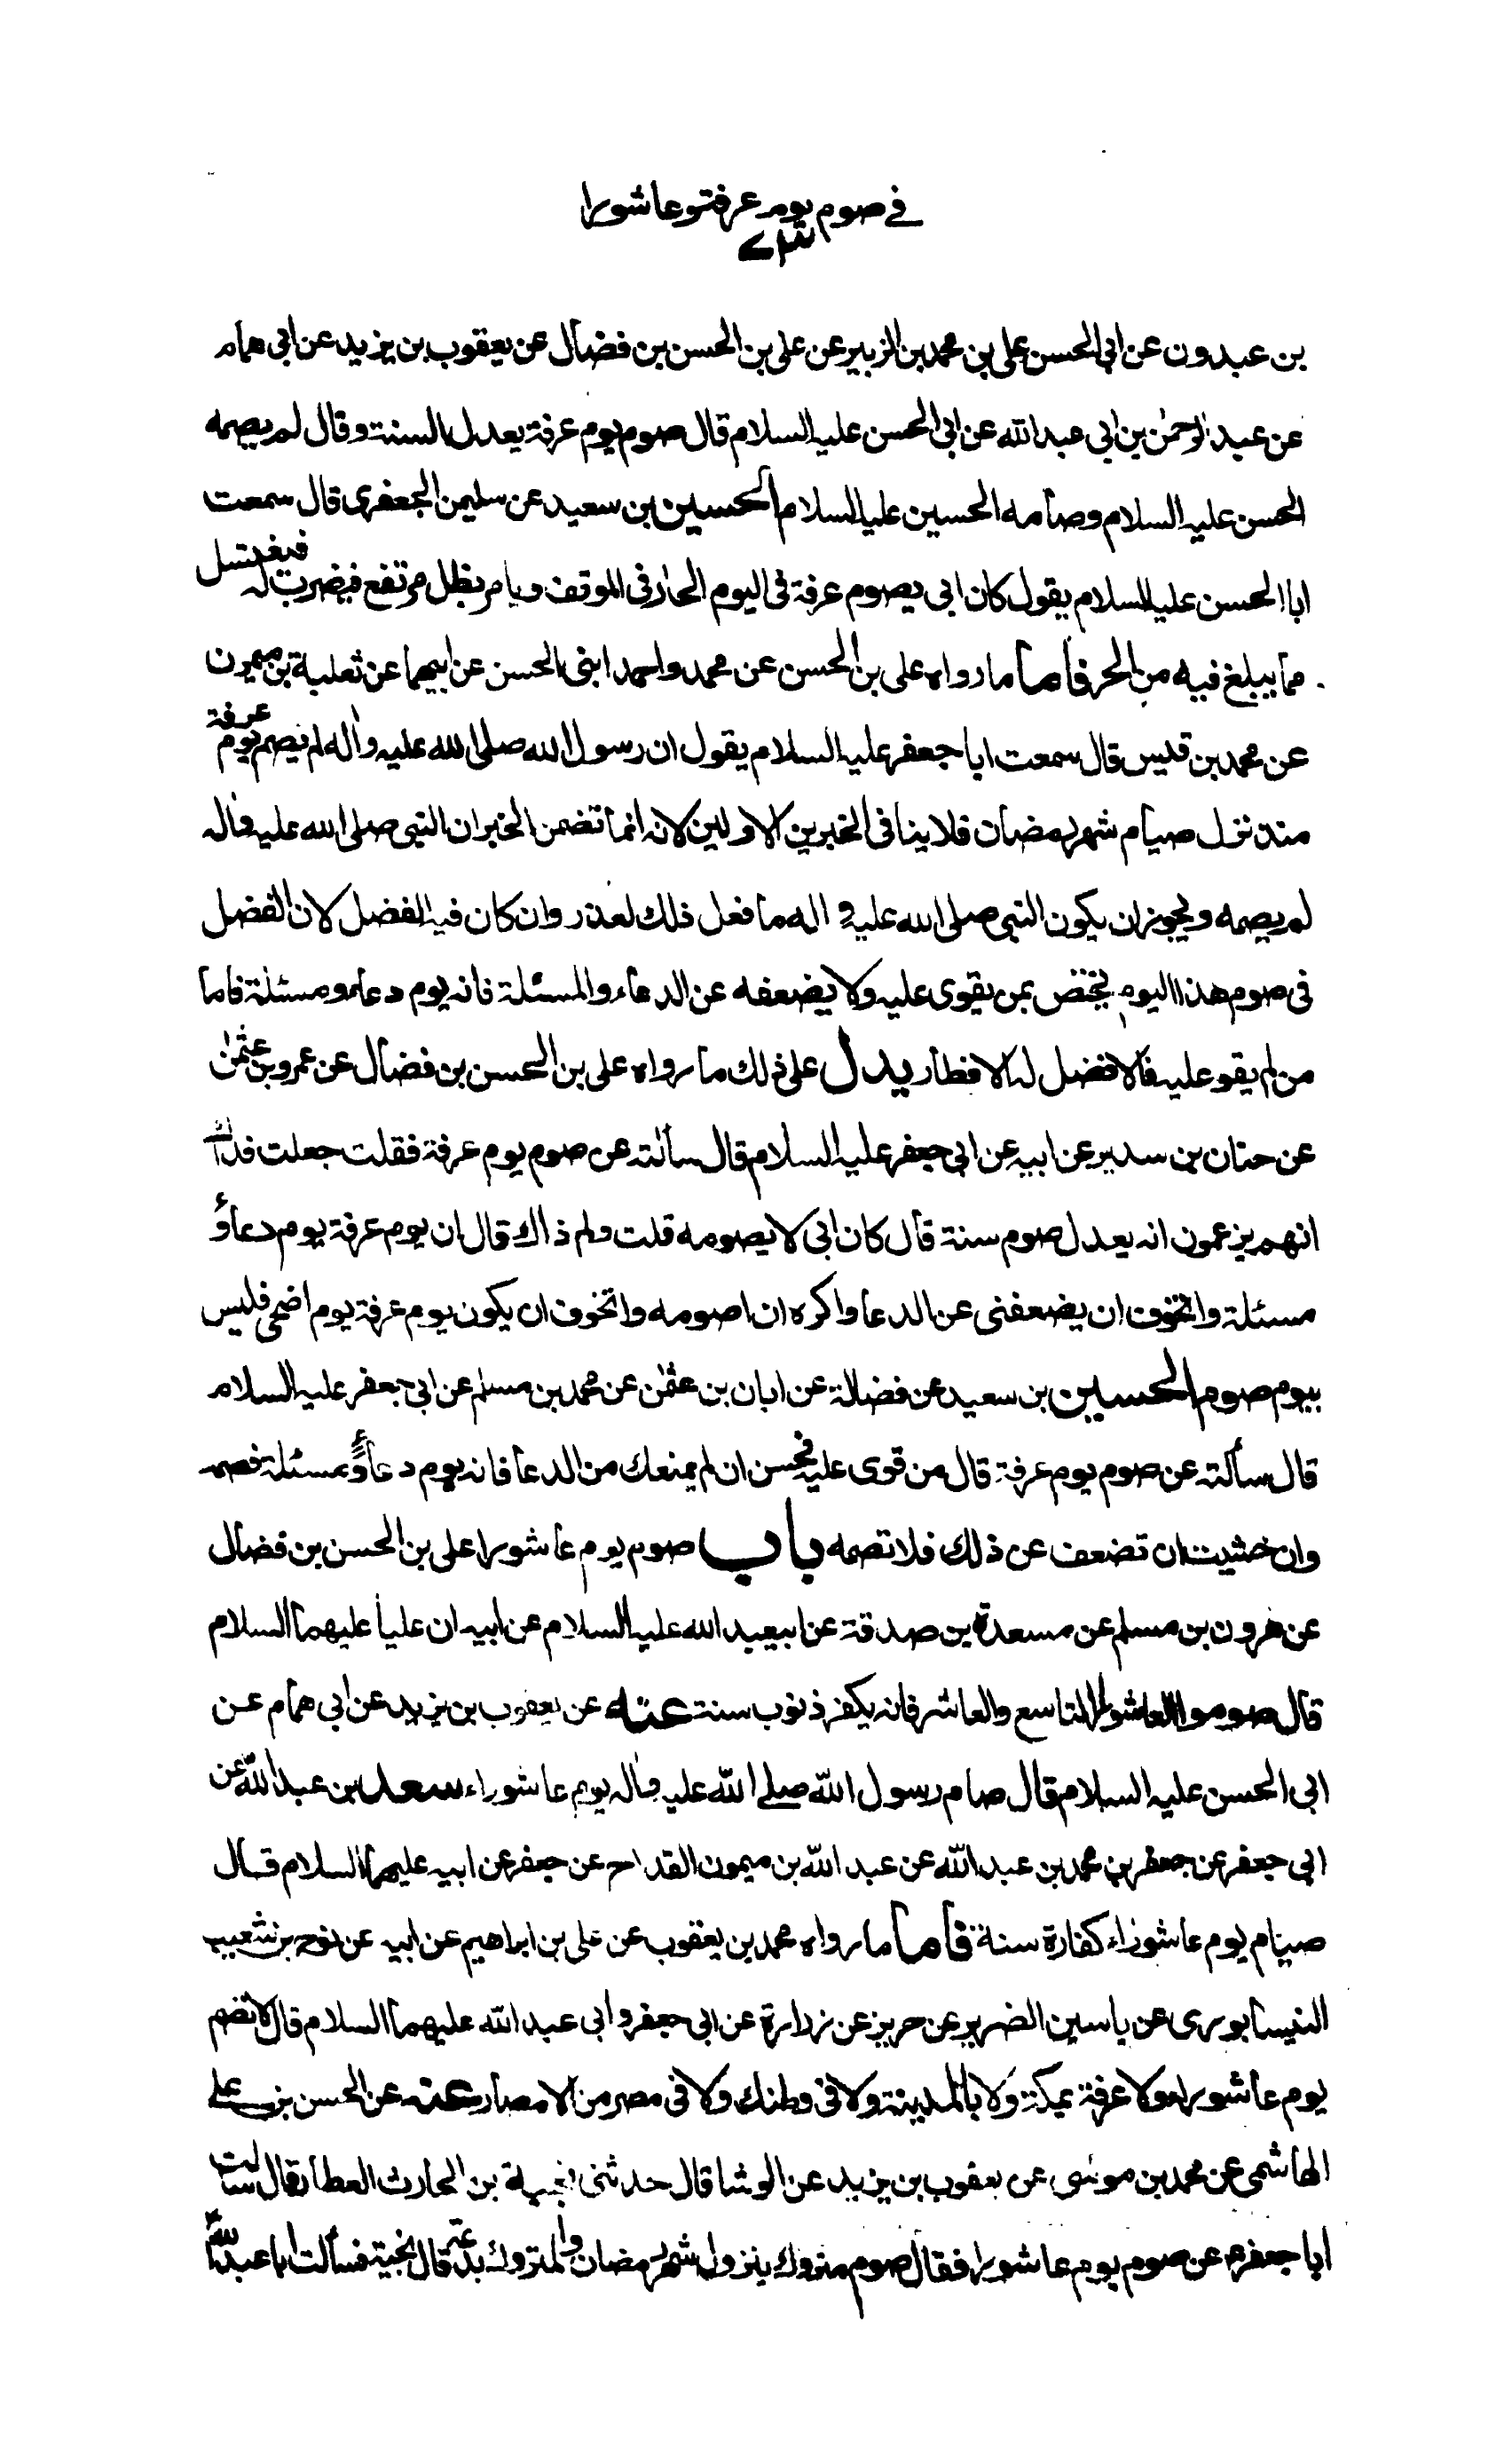 في صوم يوم عرفة وعاشورا
بن عبدون عن ابي الحسن علي بن محمد بن الزبير عن علي بن الحسن بن فضال عن يعقوب بن يزيد عن ابي همام
عن عبد الرحمن بن ابي عبد الله عن ابي الحسن عليه السلام قال صوم يوم عرفة يعدل السنة وقال لم يصمه
الحسن عليه السلام وصامه الحسين عليه السلام الحسين بن سعيد عن سليمن الجعفري قال سمعت
ابا الحسن عليه السلام يقول كان ابي يصوم عرفة في اليوم الحار في الموقف ويامر بظل مرتفع فيضرب له فيغتسل
مما يبلغ فيه من الحر فأما ما رواه علي بن الحسن عن محمد واحمد ابني الحسن عن ابيهما عن ثعلبة بن ميمون
عن محمد بن قيس قال سمعت ابا جعفر عليه السلام يقول ان رسول الله صلى الله عليه واله لم يصم يوم عرفة
منذ نزل صيام شهر رمضان فلا ينافي الخبرين الاولين لانه انما تضمن الخبر ان النبي صلى الله عليه واله
لم يصمه ويجوز ان يكون النبي صلى الله عليه و اله ما فعل ذلك لعذر وان كان فيه الفضل لان الفضل
في صوم هذا اليوم يختص بمن يقوى عليه ولا يضعفه عن الدعاء والمسئلة فانه يوم دعاء ومسئلة فاما
من لم يقو عليه فالافضل له الافطار يدل على ذلك ما رواه علي بن الحسن بن فضال عن عمرو بن عثمن
عن حنان بن سدير عن ابيه عن ابي جعفر عليه السلام قال سألته عن صوم يوم عرفة فقلت جعلت فداك
انهم يزعمون انه يعدل صوم سنة قال كان ابي لا يصومه قلت ولم ذاك قال ان يوم عرفة يوم دعاء و
مسئلة واتخوف ان يضعفني عن الدعا واكره ان اصومه واتخوف ان يكون يوم عرفة يوم اضحى فليس
بيوم صوم الحسين بن سعيد عن فضالة عن ابان بن عثمن عن محمد بن مسلم عن ابي جعفر عليه السلام
قال سألته عن صوم يوم عرفة قال من قوى عليه فحسن ان لم يمنعك من الدعا فانه يوم دعاء ومسئلة فصمه
وان خشيت ان تضعف عن ذلك فلا تصمه باب صوم يوم عاشورا علي بن الحسن بن فضال
عن هرون بن مسلم عن مسعدة بن صدقة عن ابيعبد الله عليه السلام عن ابيه ان عليا عليهما السلام
قال صوموا العاشورا التاسع والعاشر فانه يكفر ذنوب سنة عنه عن يعقوب بن يزيد عن ابي همام عن
ابي الحسن عليه السلام قال صام رسول الله صلى الله عليه واله يوم عاشوراء سعد بن عبد الله عن
ابي جعفر عن جعفر بن محمد بن عبد الله عن عبد الله بن ميمون القداح عن جعفر عن ابيه عليهما السلام قال
صيام يوم عاشوراء كفارة سنة فأما ما رواه محمد بن يعقوب عن علي بن ابراهيم عن ابيه عن نوح بن شعيب
النيسابوري عن ياسين الضرير عن حريز عن زرارة عن ابي جعفر وابي عبد الله عليهما السلام قال لا تصم
يوم عاشورا ولا عرفة بمكة ولا بالمدينة ولا في وطنك ولا في مصر من الامصار عنه عن الحسن بن علي
الهاشمي عن محمد بن موسى عن يعقوب بن يزيد عن الوشا قال حدثني نجية بن الحارث العطار قال سالت
ابا جعفر ع عن صوم يوم عاشورا فقال صوم متروك بنزول شهر رمضان والمتروك بدعة قال نجية فسألت ابا عبد الله